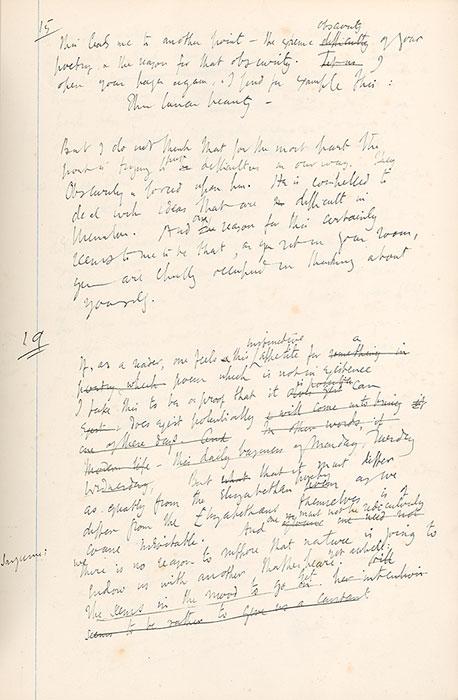 15
obscurity
This leads me to another point - the extreme difficulty of your
poetry, & the reason for that obscurity. Let us
open your pages again, & I find for example this:
Thin lunar beauty -
But I do not think that for the most part the
poet is trying to put difficulties in our way. The
Obscurity is forced upon him. He is compelled to
deal with ideas that are difficult in
themselves. And one reason for this certainly
seems to me to be that, as you sit in your room,
you are chiefly occupied in thinking about
yourself.
19
instinctive
If, as a reader, one feels this appetite for something in a
poetry which poem which is not in existence
I take this to be a proof that it can
exist & does exist potentially & will come into being
one of these days. In other words of
modern life - this daily business of Monday, Tuesday
Wednesday, But that it must differ
as greatly from the Elizabethan poetry as we
differ from the Elizabethans themselves is of
course inevitable. And we must not be ridiculously
of course we need not
sanguine:
there is no reason to suppose that nature is going to
endow us with another Shakespeare,
She seems in the mood to her intention
seems to be rather to give us a constant